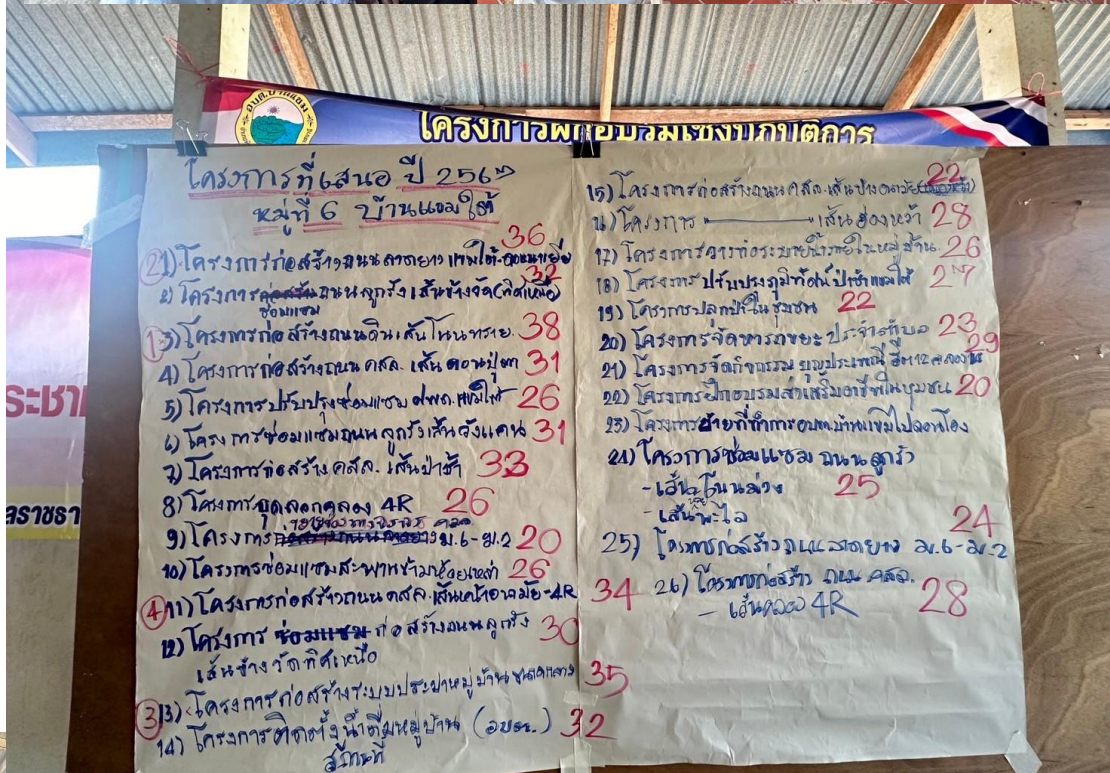 อบต.บ้านแขม
โครงการฝึกอบรมเชิงปฏิบัติการ
โครงการที่เสนอ ปี 256
หมู่ที่ 6 บ้านแขมใต้
36
② 1) โครงการก่อสร้างถนนลาดยาง แขมใต้-
2) โครงการก่อสร้างถนนลูกรังเส้นข้างวัด(ทิศเหนือ) 32
ซ่อมแซม
① 3) โครงการก่อสร้างถนนดินเส้นโนนทราย 38
4) โครงการก่อสร้างถนน คสล. เส้นดอนปู่ตา 31
5) โครงการปรับปรุงซ่อมแซม ศพด.แขมใต้ 26
6) โครงการซ่อมแซมถนนลูกรังเส้นวังแคน 31
7) โครงการก่อสร้าง คสล. เส้นป่าช้า 33
8) โครงการขุดลอกคลอง 4R 26
9) โครงการ ม.6-ม.2 20
10) โครงการซ่อมแซมสะพานข้ามห้วยเหล่า 26
④ 11) โครงการก่อสร้างถนน คสล. เส้นอนามัย-4R 34
12) โครงการ ซ่อมแซม ก่อสร้างถนนลูกรัง 30
เส้นข้างวัดทิศเหนือ
③ 13) โครงการก่อสร้างระบบประปาหมู่บ้านขนาดกลาง 35
14) โครงการติดตั้งน้ำดื่มหมู่บ้าน (อบต.) 32
15) โครงการก่อสร้างถนน คสล. เส้นข้างอนามัย 22
16) โครงการ เส้นฮ่องหว้า 28
17) โครงการวางท่อระบายน้ำภายในหมู่บ้าน 26
18) โครงการปรับปรุงภูมิทัศน์ ป่าช้าแขมใต้ 27
19) โครงการปลูกป่าในชุมชน 22
20) โครงการจัดหารถขยะ ประจำตำบล 23
21) โครงการจัดกิจกรรม บุญประเพณี ฮีต 12 คลอง 29
22) โครงการฝึกอบรมส่งเสริมอาชีพในชุมชน 20
23) โครงการย้ายที่ทำการอบต.บ้านแขมไป
24) โครงการซ่อมแซม ถนนลูกรัง
- เส้นโนนม่วง 25
- เส้น
24
25) โครงการก่อสร้างถนนลาดยาง ม.6-ม.2
26) โครงการก่อสร้าง ถนน คสล.
- เส้นคลอง 4R 28
ระชา
ลราชธา